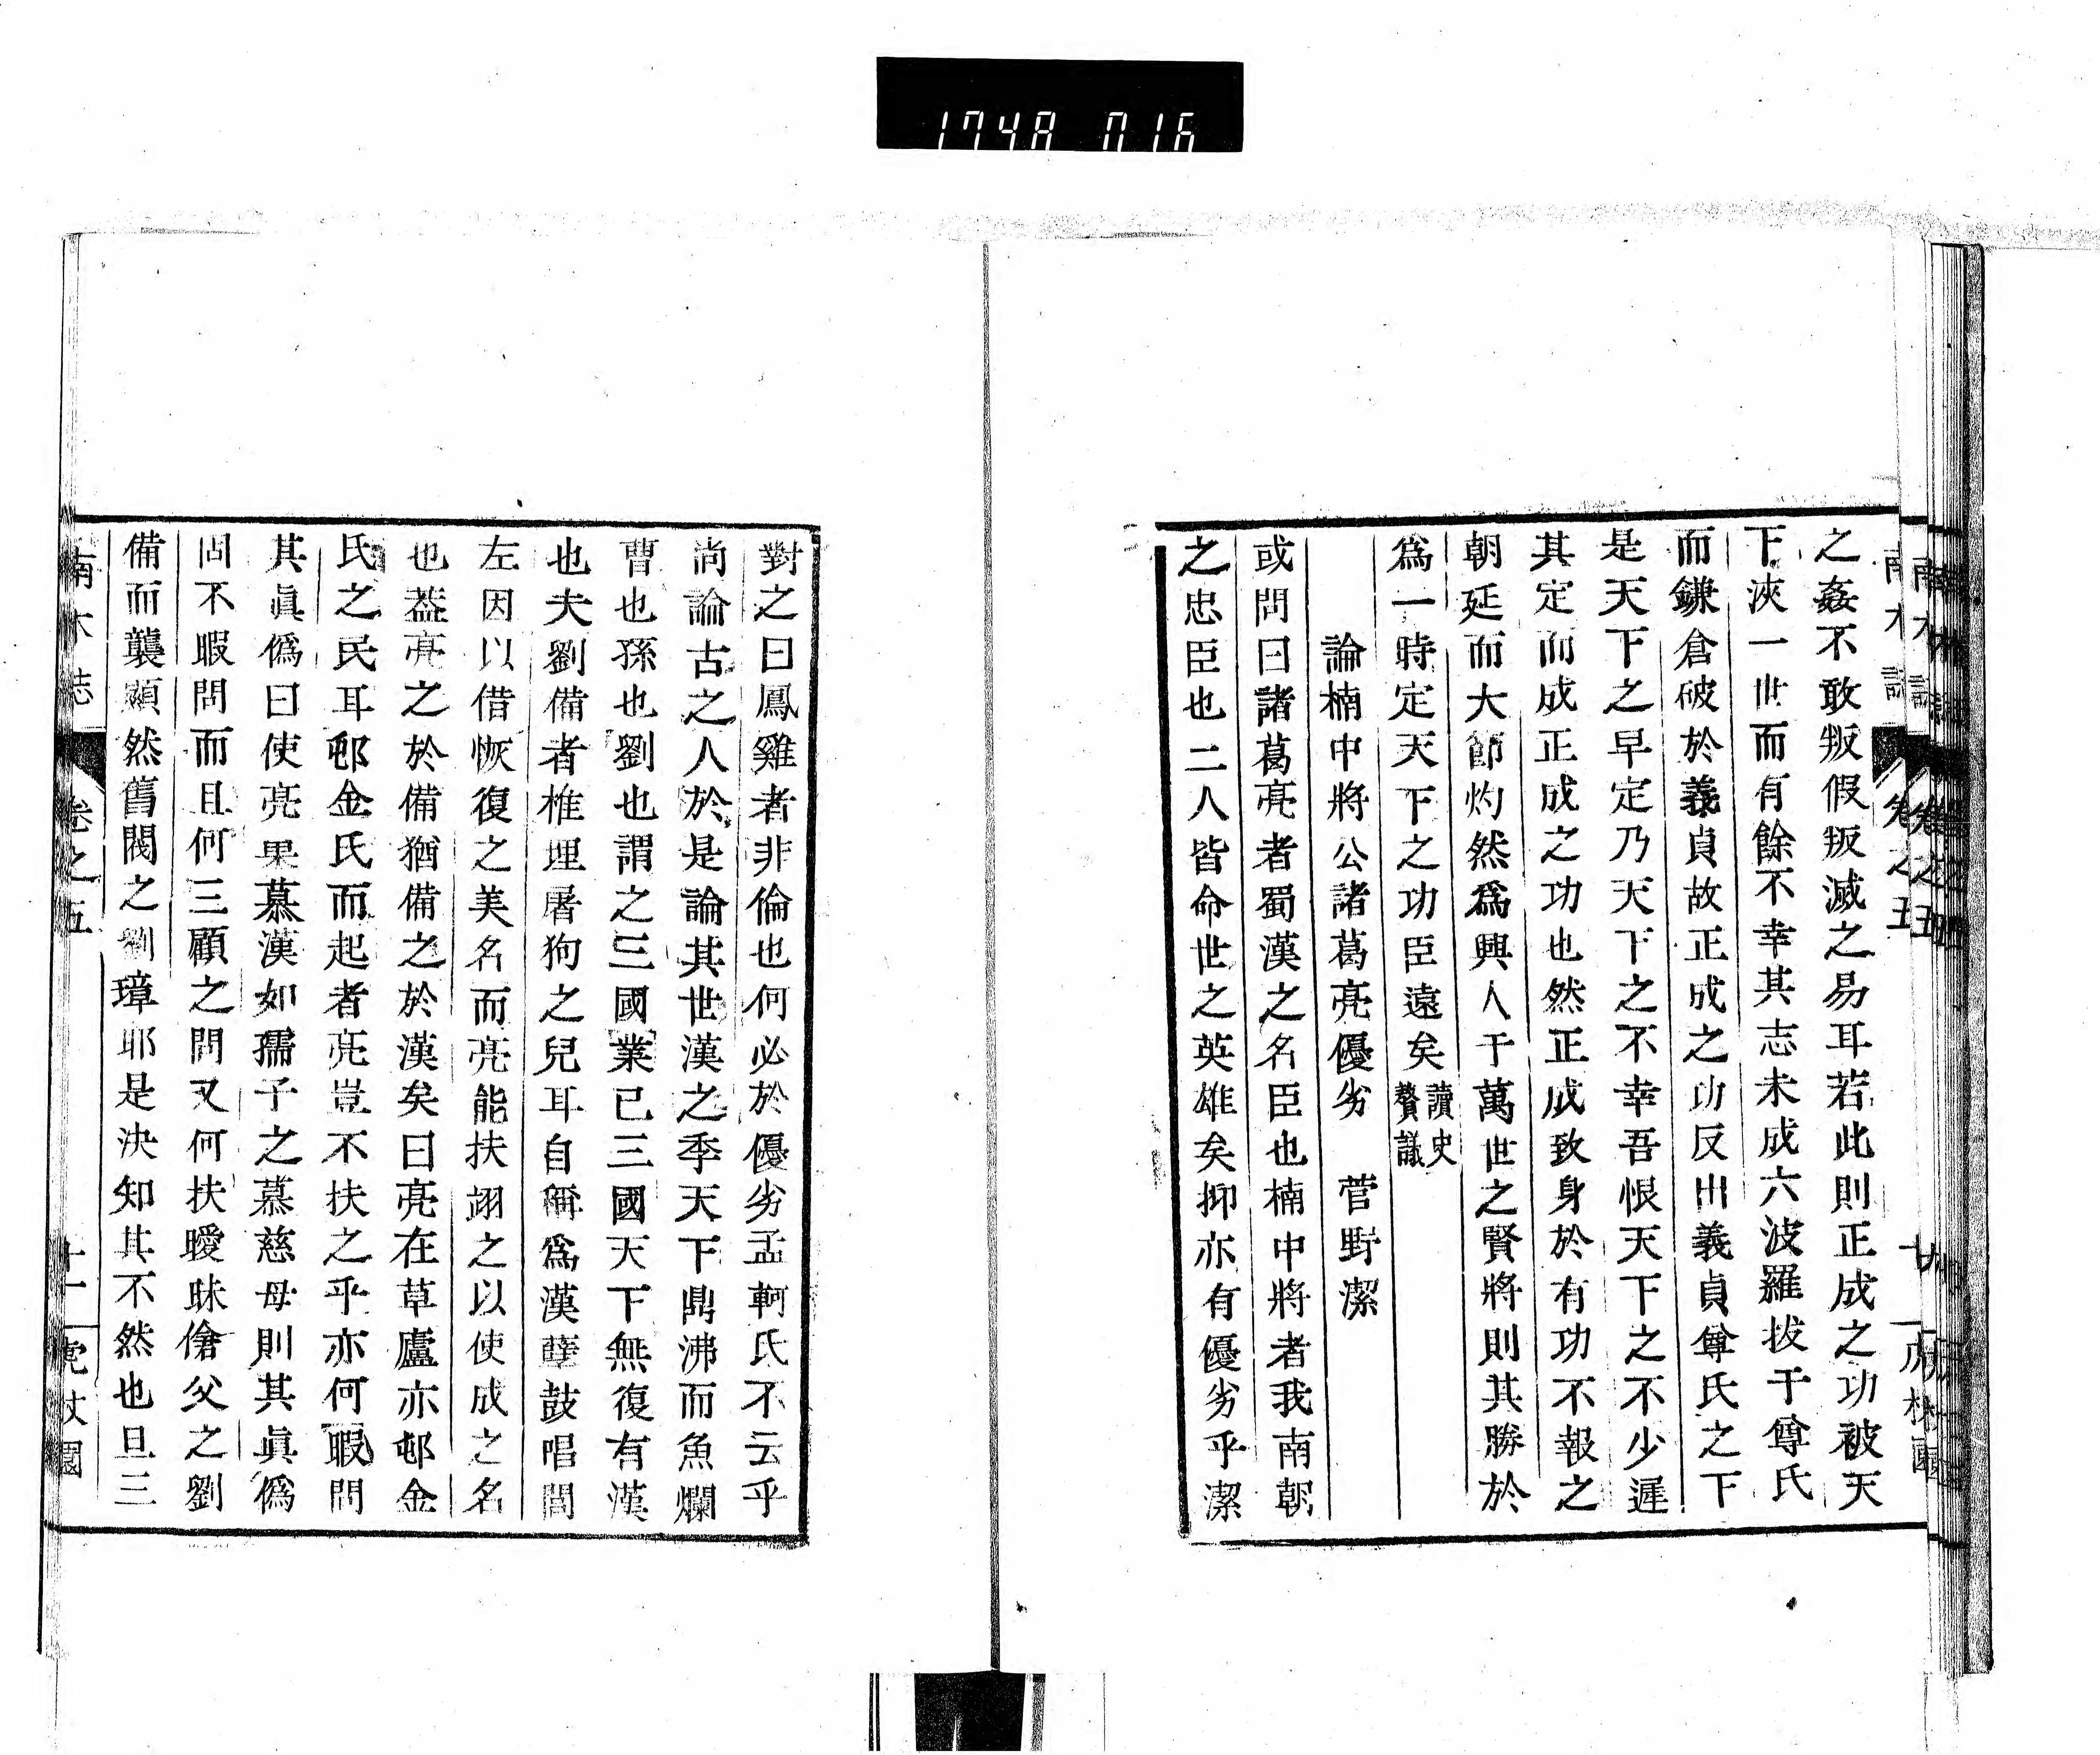 1748 016
之姦不敢叛假叛滅之易耳若此則正成之功被天
下浹一世而有餘不幸其志未成六波羅拔于尊氏
而鎌倉破於義貞故正成之功反出義貞尊氏之下
是天下之早定乃天下之不幸吾恨天下之不少遲
其定而成正成之功也然正成致身於有功不報之
朝廷而大節灼然爲興人于萬世之賢將則其勝於
爲一時定天下之功臣遠矣讀史贅議
論楠中將公諸葛亮優劣　菅野潔
或問曰諸葛亮者蜀漢之名臣也楠中將者我南朝
之忠臣也二人皆命世之英雄矣抑亦有優劣乎潔
對之曰鳳雞者非倫也何必於優劣孟軻氏不云乎
尚論古之人於是論其世漢之季天下鼎沸而魚爛
曹也孫也劉也謂之三國業已三國天下無復有漢
也夫劉備者椎埋屠狗之兒耳自稱爲漢孽鼓唱閭
左因以借恢復之美名而亮能扶翊之以使成之名
也蓋亮之於備猶備之於漢矣曰亮在草廬亦邨金
氏之民耳邨金氏而起者亮豈不扶之乎亦何暇問
其眞僞曰使亮果慕漢如孺子之慕慈母則其眞僞
固不暇問而且何三顧之問又何扶曖昧傖父之劉
備而襲顯然舊閥之劉璋耶是決知其不然也且三
南木志　卷之五　十一